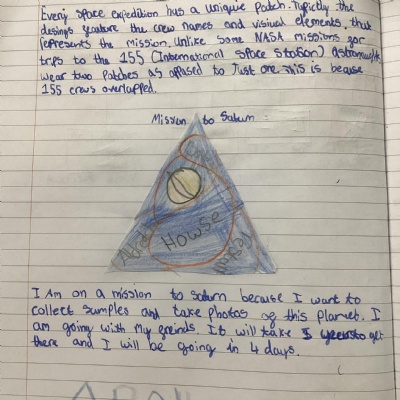 Every space expedition has a unique patch. Typiclly the
desings feature the crew names and visiual elements, that
represents the mission. Unlike some NASA missions for
trips to the 155 (International Space Station) astronaughts
wear two patches as apased to Just one this is becase
155 crews overlapped.
Mission to Saturn:
Howse
I Am on a mission to saturn because I want to
collect samples and take photos of this planet. I
am going with My freinds. It will take 5 years to get
there and I will be going in 4 days.